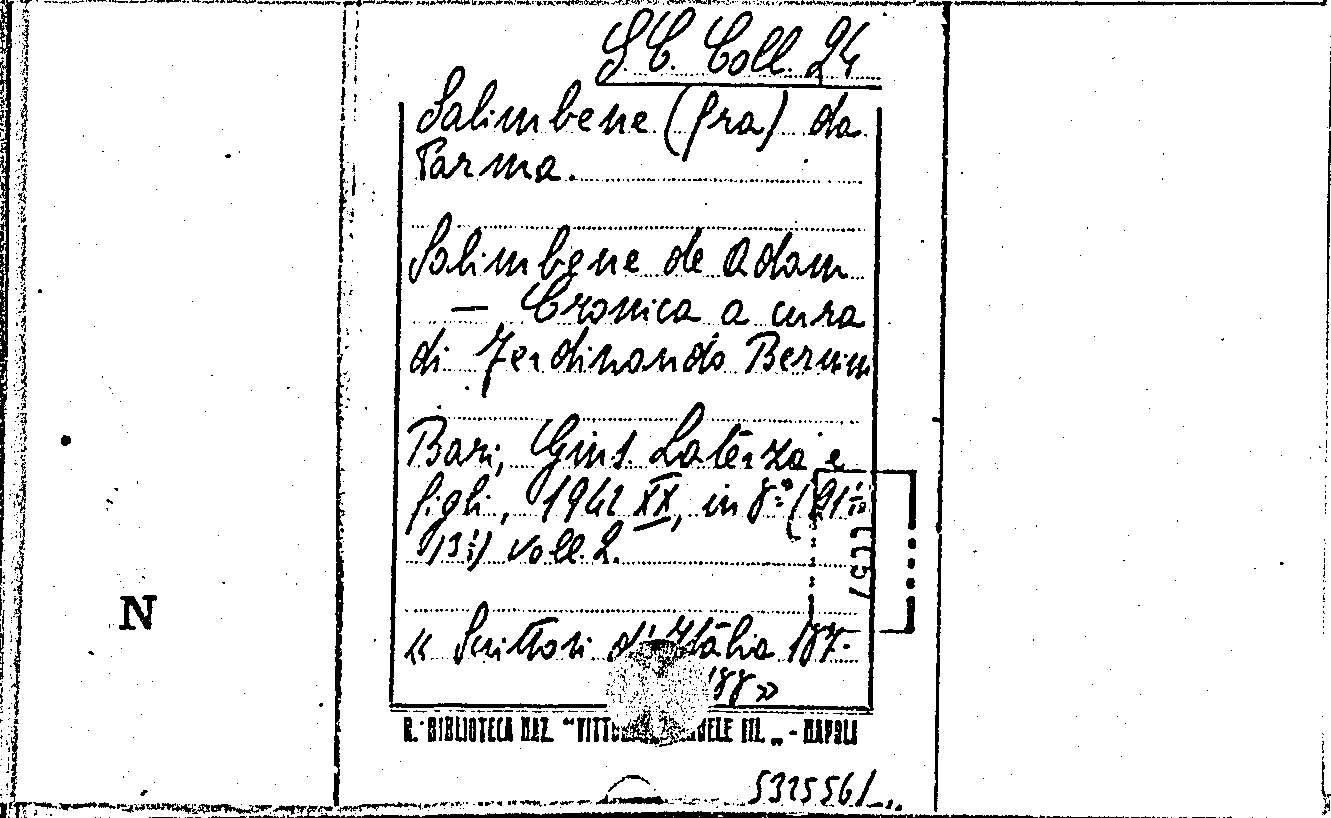 S.C. Coll. 24
Salimbene (fra) da
Parma.
Salimbene de Adam
— Cronica a cura
di Ferdinando Bernini
Bari, Gius. Laterza e
figli, 1942 XX, in 8.° (
voll. 2.
« Scrittori d'Italia 187-
188 »
R. BIBLIOTECA NAZ. "VITTO ELE III. „ - NAPOLI
N